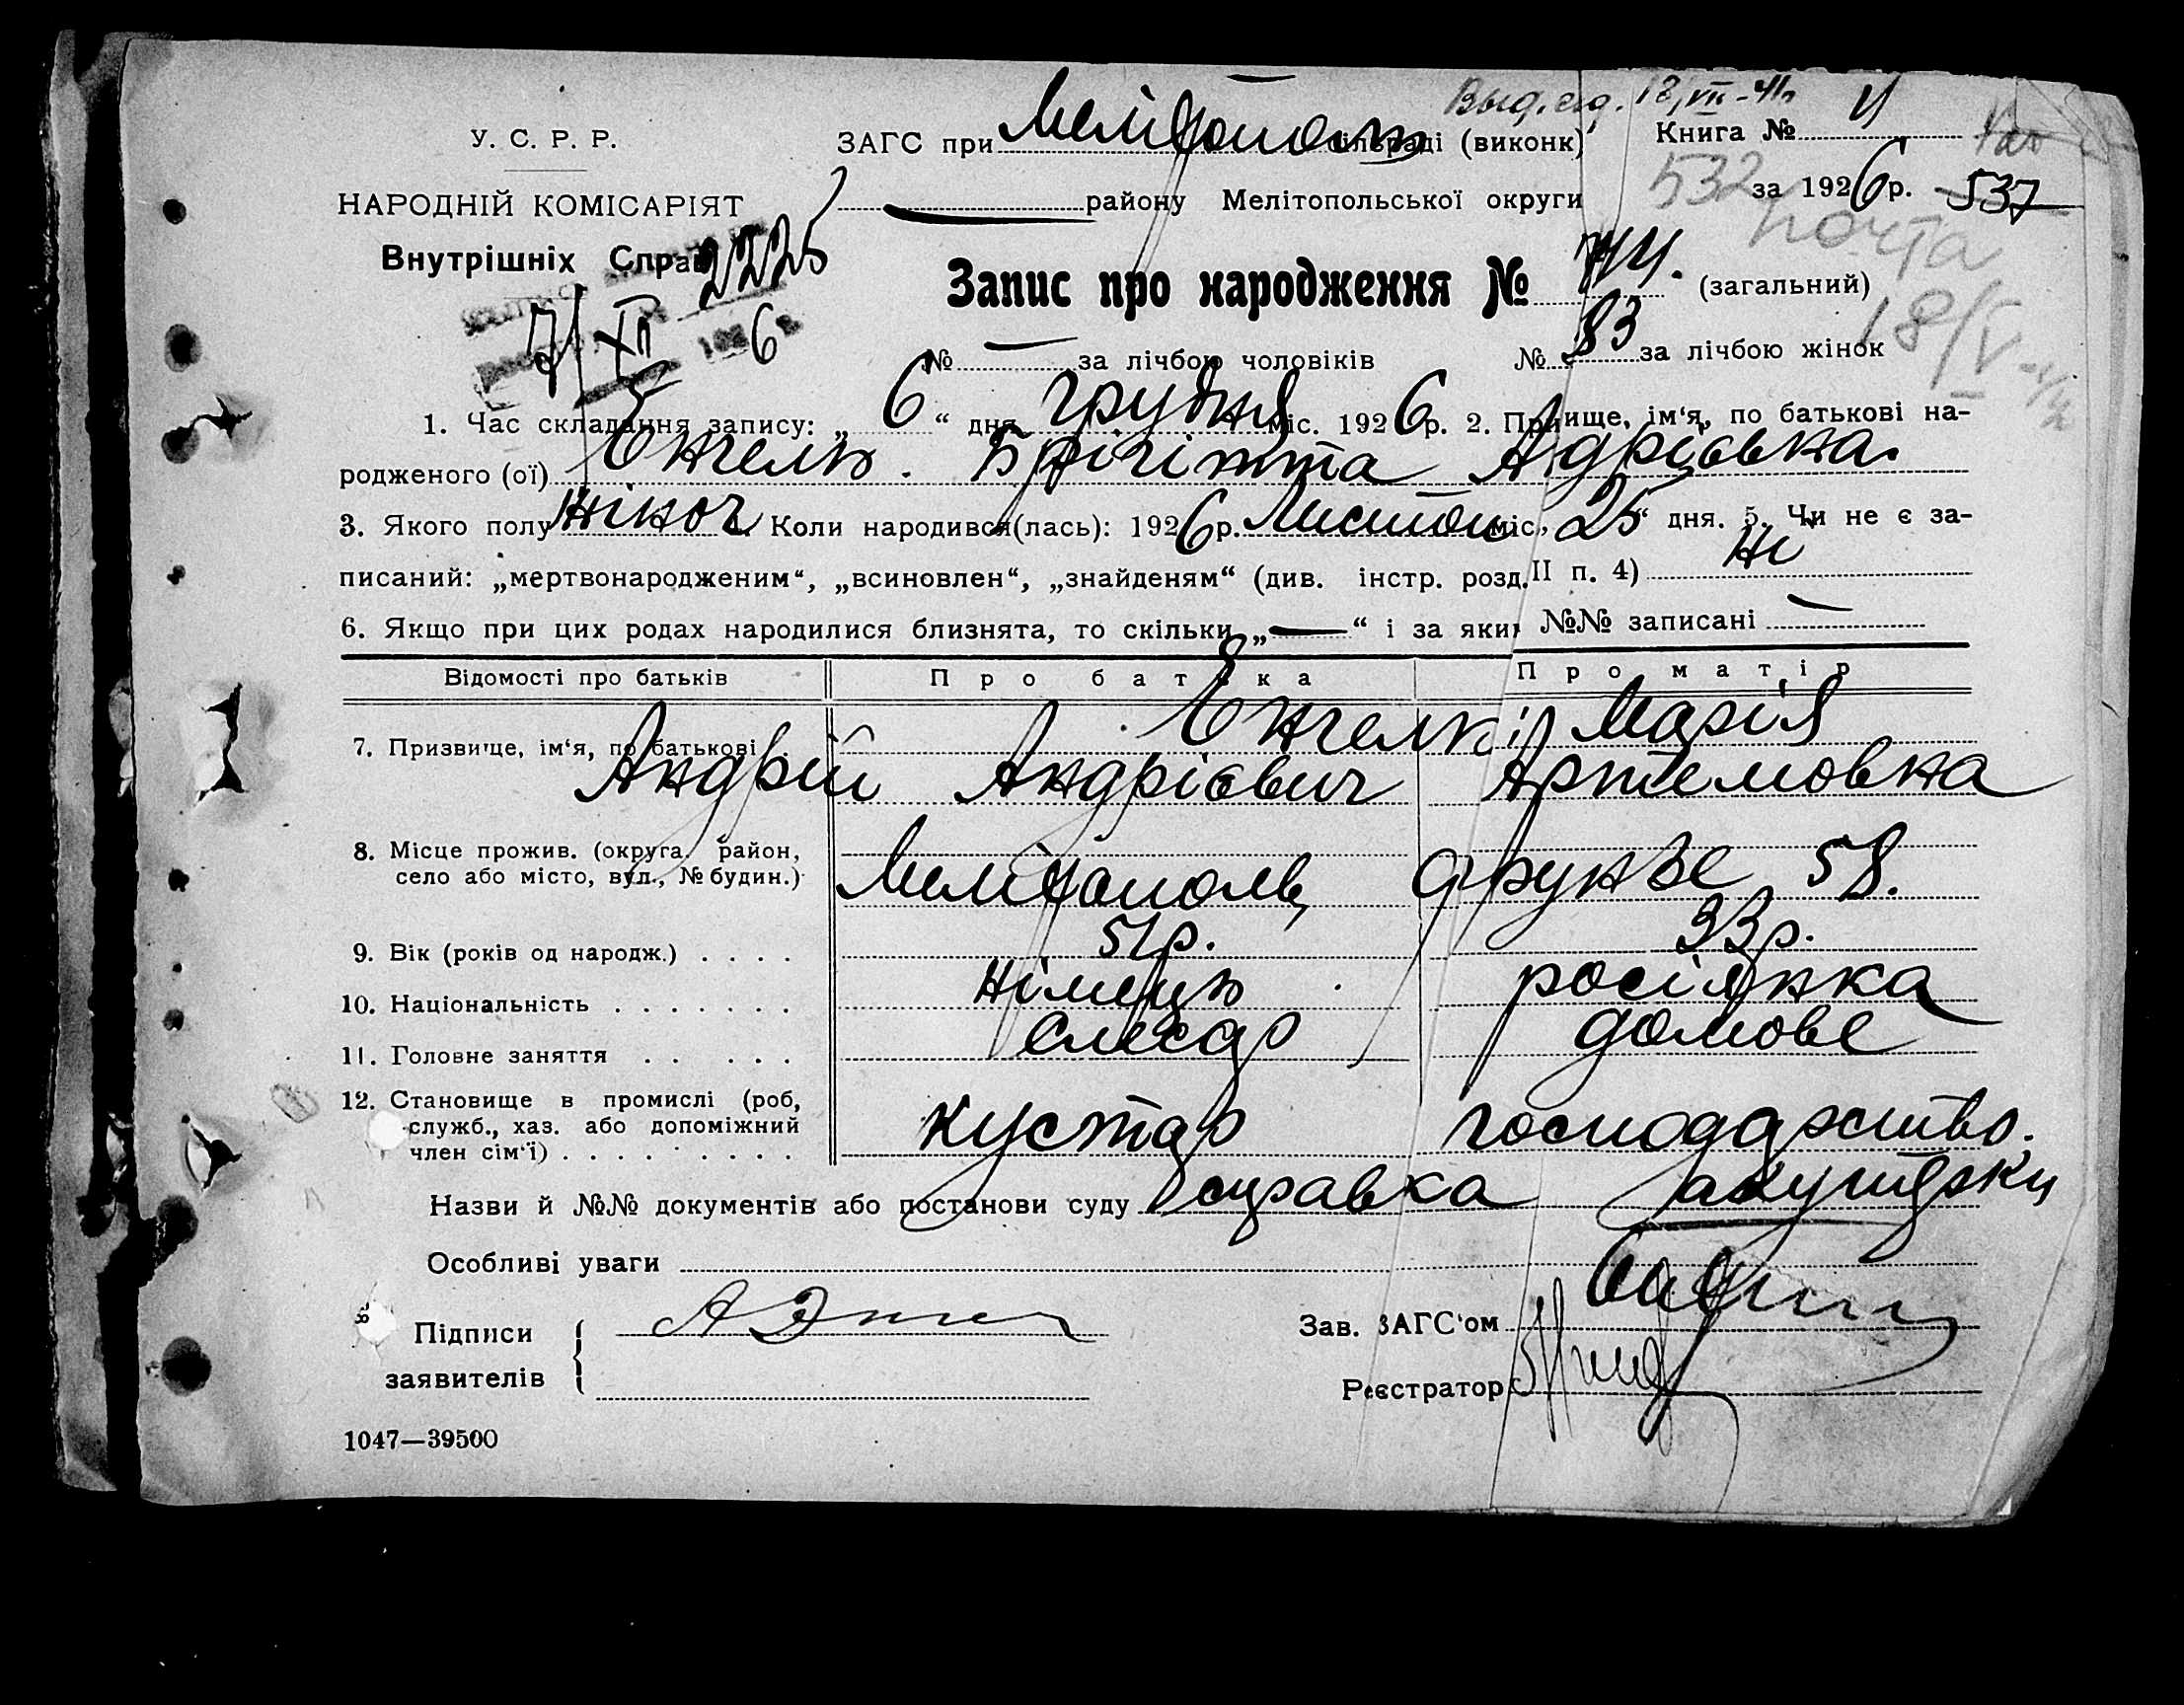 Выд. сд. 12/VII-41г
У. С. Р. Р.
ЗАГС при Мелітополь сільраді (виконк)
Книга №
НАРОДНІЙ КОМІСАРІЯТ
района Мелітопольської округи
532 за 1926 р. 537
почта
Внутрішніх Справ 2225
Запис про народження № 744. (загальний)
7/XII 1926 р.
№ — за лічбою чоловіків № 83 за лічбою жінок
18/V-41
1. Час складання запису: „ 6 “ дня грудня міс. 1926 р. 2. Призвище, ім‘я, по батькові на-
родженого (ої) Енгель. Брігітта Адріівна.
3. Якого полу жіноч. 4. Коли народився(лась): 1926 р. Листоп міс. „25“ дня. 5. Чи не є за-
писаний: „мертвонародженим“, „всиновлен“, „знайденям“ (див. інстр. розд. II п. 4) Ні
6. Якщо при цих родах народилися близнята, то скільки „—“ і за яким №№ записані —
Відомості про батьків Про батька Про матір
7. Призвище, ім‘я, по батькові Енгель і Марія
Андрій Андрієвич Артемовна
8. Місце прожив. (округа, район,
село або місто, вул., № будин.) Мелітополь, Фрунзе 58.
9. Вік (років од народж.) . . . . 51 р. 33 р.
10. Національність . . . . . . . німець росіянка
11. Головне заняття . . . . . слесар домове
12. Становище в промислі (роб,
служб., хаз. або допоміжний
член сім‘ї) . . . . . . . . . кустар господарство.
Назви й №№ документів або постанови суду справка акушерки
Особливі уваги
Підписи
заявителів
А Энгел
Зав. ЗАГС‘ом
Реєстратор
1047—39500